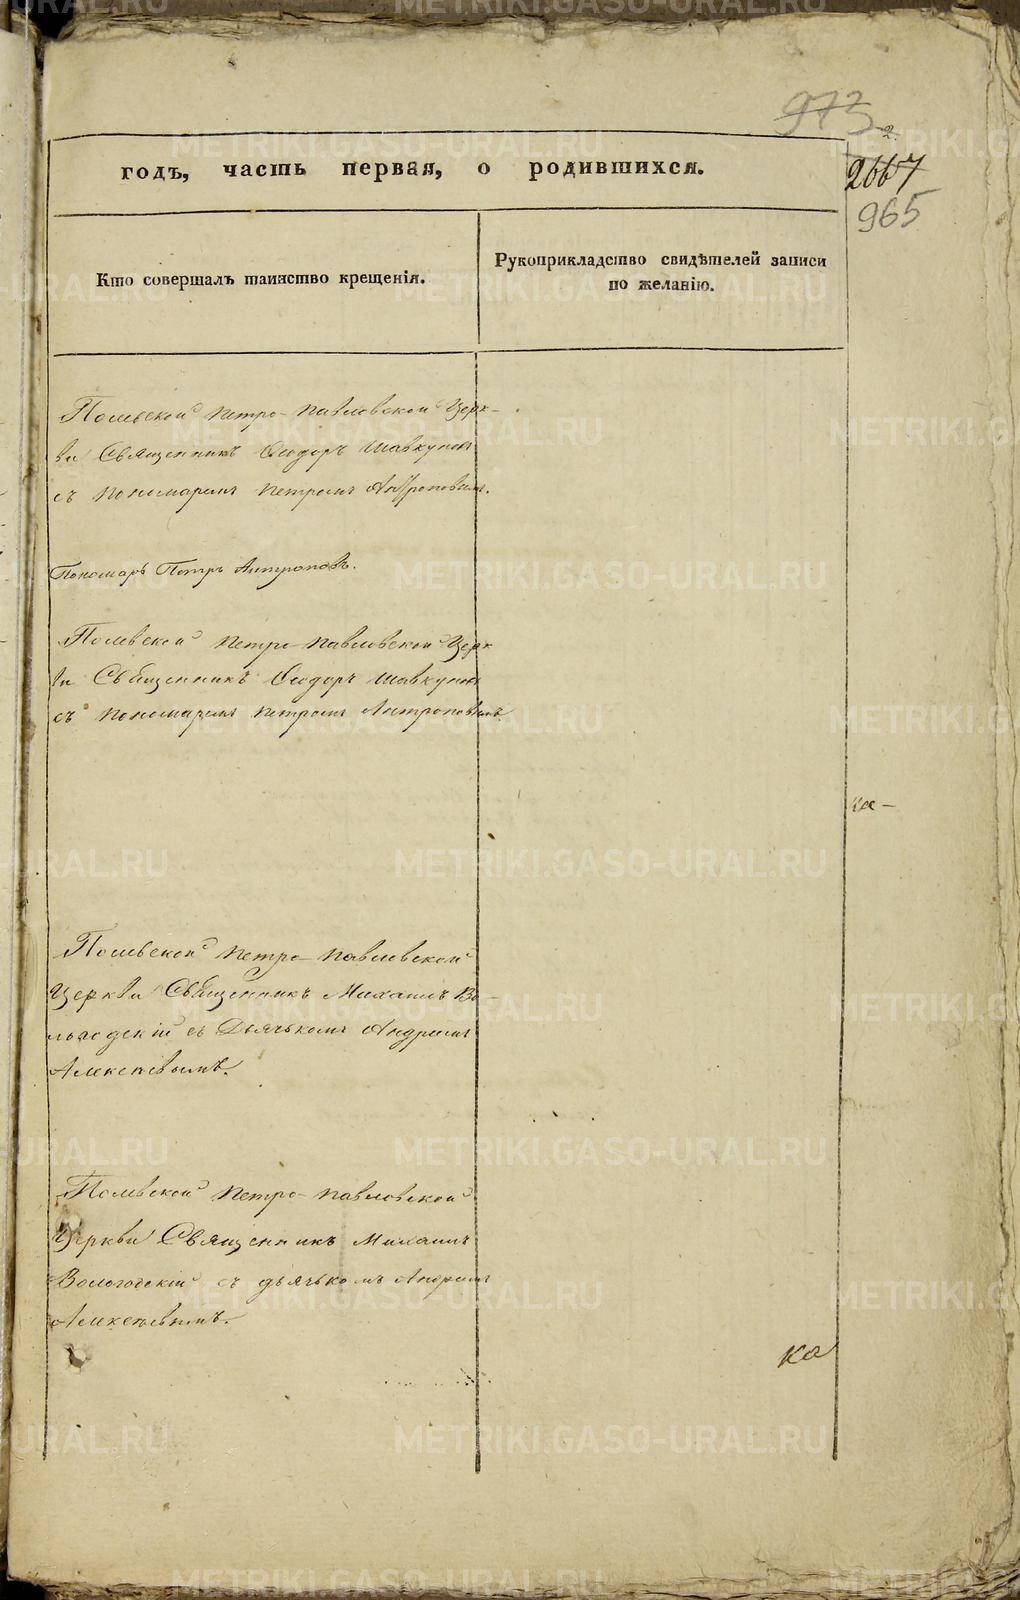 973
2.
2667
965
годъ, часть первая, о родившихся.
Кто совершалъ таинство крещенія.
Рукоприкладство свидѣтелей записи
по желанію.
Полевской Петро-Павловской Церк-
ви Священникъ Ѳеодоръ Шавкуновъ
съ пономаремъ Петромъ Антроповымъ.
Пономарь Петръ Антроповъ.
Полевской Петро Павловской Церк
ви Священникъ Ѳеодоръ Шавкуновъ
съ пономаремъ Петромъ Антроповымъ
ка-
Полевской Петро-Павловской
Церкви Священникъ Михаилъ Во-
логодскій съ Дьячькомъ Андреемъ
Алексѣевымъ.
Полевской Петро-Павловской
Церкви Священникъ Михаилъ
Вологодскій съ дьячькомъ Андреемъ
Алексѣевымъ.
ка
METRIKI.GASO-URAL.RU